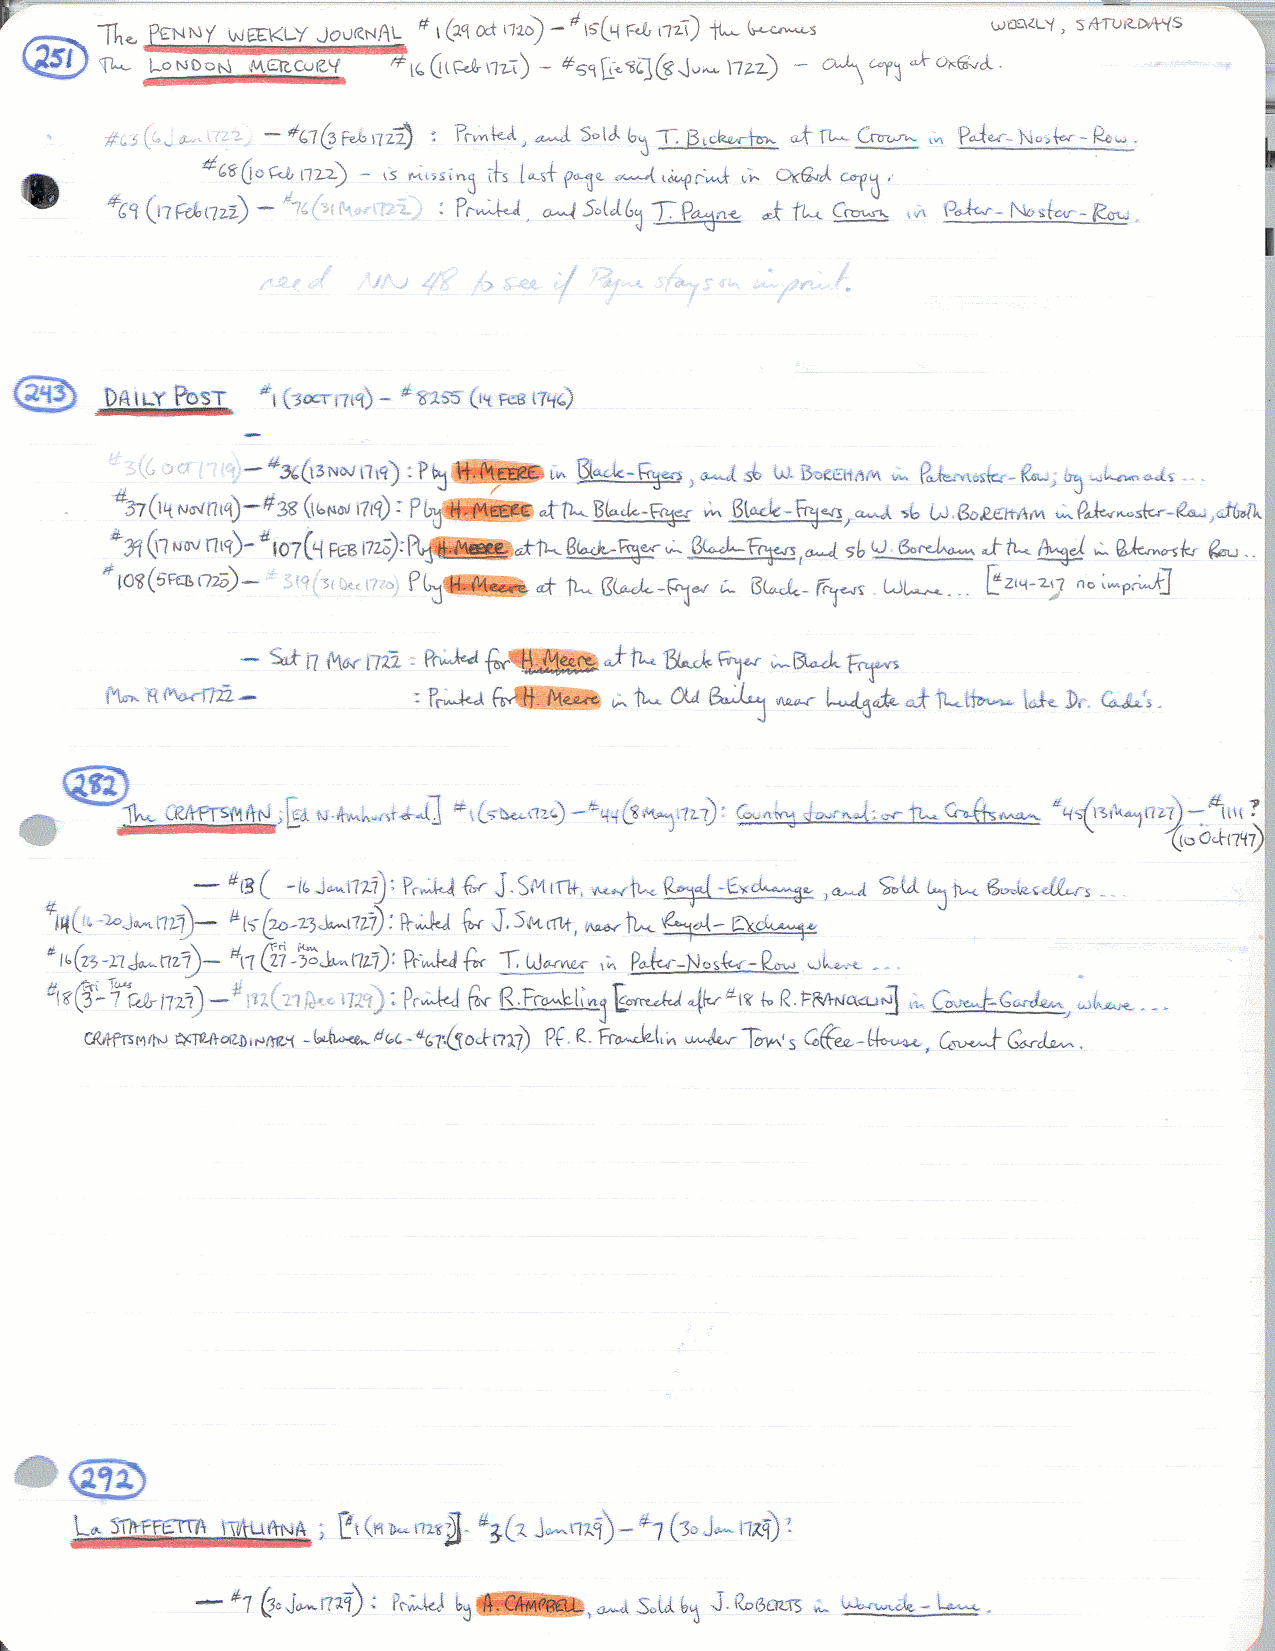 The PENNY WEEKLY JOURNAL #1 (29 Oct 1720) – #15 (4 Feb 1721̄) the becomes WEEKLY, SATURDAYS
251 The LONDON MERCURY #16 (11 Feb 1721̄) – #59 [ie 86] (8 June 1722) – Only copy at Oxford.
#63 (6 Jan 1722) – #67 (3 Feb 1722̄) : Printed, and Sold by T. Bickerton at The Crown in Pater-Noster-Row.
#68 (10 Feb 1722) – is missing its last page and imprint in Oxford copy.
#69 (17 Feb 1722̄) – #76 (31 Mar 1722̄) : Printed, and Sold by T. Payne at the Crown in Pater-Noster-Row.
need NN 48 to see if Payne stays on imprint.
243 DAILY POST #1 (3 OCT 1719) – #8255 (14 FEB 1746)
–
#3 (6 OCT 1719) – #36 (13 NOV 1719) : P by H. MEERE in Black-Fryers, and sb W. BOREHAM in Paternoster-Row; by whom ads ...
#37 (14 NOV 1719) – #38 (16 NOV 1719) : P by H. MEERE at the Black-Fryer in Black-Fryers, and sb W. BOREHAM in Paternoster-Row, at both
#39 (17 NOV 1719) – #107 (4 FEB 1720̄) : P by H. Meere at the Black-Fryer in Black-Fryers, and sb W. Boreham at the Angel in Paternoster Row ..
#108 (5 FEB 1720̄) – #319 (31 Dec 1720) P by H. Meere at the Black-Fryer in Black-Fryers. Where... [#214-217 no imprint]
– Sat 17 Mar 1722̄ : Printed for H. Meere at the Black Fryer in Black Fryers
Mon 19 Mar 1722̄ – : Printed for H. Meere in the Old Bailey near Ludgate at the House late Dr. Cade's.
282
The CRAFTSMAN; [Ed N. Amhurst et al] #1 (5 Dec 1726) – #44 (8 May 1727) : Country Journal: or The Craftsman #45 (13 May 1727) – #1111 ?
(10 Oct 1747)
– #13 ( -16 Jan 1727̄) : Printed for J. SMITH, near the Royal-Exchange, and Sold by the Booksellers ...
#14 (16-20 Jan 1727̄) – #15 (20-23 Jan 1727̄) : Printed for J. SMITH, near the Royal-Exchange
#16 (23-27 Jan 1727̄) – #17 (Fri 27 - Mon 30 Jan 1727̄) : Printed for T. Warner in Pater-Noster-Row, where ...
#18 (Fri 3 - Tues 7 Feb 1727̄) – #182 (27 Dec 1729) : Printed for R. Franklin [corrected after #18 to R. FRANCKLIN] in Covent-Garden, where ...
CRAFTSMAN EXTRAORDINARY – between #66 - #67: (9 Oct 1727) Pf. R. Francklin under Tom's Coffee-House, Covent Garden.
292
La STAFFETTA ITALIANA; [#1 (19 Dec 1728?)] - #3 (2 Jan 1729̄) – #7 (30 Jan 1729̄) ?
– #7 (30 Jan 1729̄) : Printed by A. CAMPBELL, and Sold by J. ROBERTS in Warwick-Lane.